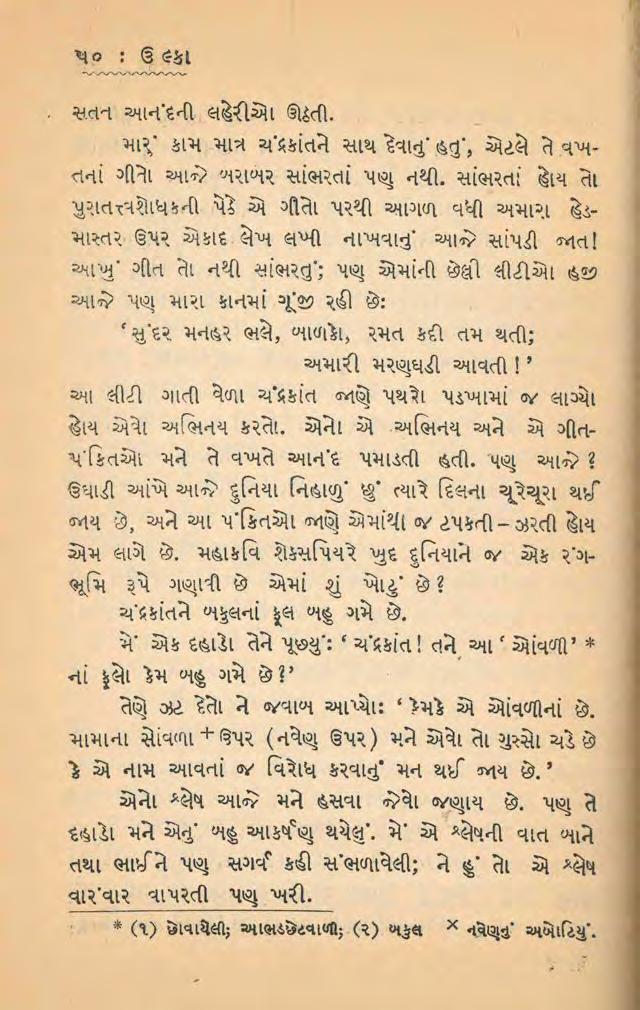 ૫૦ : ઉલ્કા
સતત આનંદની લહેરીઓ ઊઠતી.
મારું કામ માત્ર ચંદ્રકાંતને સાથ દેવાનું હતું, એટલે તે વખ-
તનાં ગીતો આજે બરાબર સાંભરતાં પણ નથી. સાંભરતાં હોય તો
પુરાતત્ત્વશોધકની પેઠે એ ગીતો પરથી આગળ વધી અમારા હેડ-
માસ્તર ઉપર એકાદ લેખ લખી નાખવાનું આજે સાંપડી જાત!
આખું ગીત તો નથી સાંભરતું; પણ એમાંની છેલ્લી લીટીઓ હજી
આજે પણ મારા કાનમાં ગૂંજી રહી છે:
‘સુંદર મનહર ભલે, બાળકો, રમત કદી તમ થતી;
અમારી મરણઘડી આવતી!’
આ લીટી ગાતી વેળા ચંદ્રકાંત જાણે પથરો પડખામાં જ લાગ્યો
હોય એવો અભિનય કરતો. એનો એ અભિનય અને એ ગીત-
પંકિતઓ મને તે વખતે આનંદ પમાડતી હતી. પણ આજે?
ઉઘાડી આંખે આજે દુનિયા નિહાળું છું ત્યારે દિલના ચૂરેચૂરા થઈ
જાય છે, અને આ પંકિતઓ જાણે એમાંથી જ ટપકતી – ઝરતી હોય
એમ લાગે છે. મહાકવિ શેક્સપિયરે ખુદ દુનિયાને જ એક રંગ-
ભૂમિ રૂપે ગણાવી છે એમાં શું ખોટું છે?
ચંદ્રકાંતને બકુલનાં ફૂલ બહુ ગમે છે.
મેં એક દહાડો તેને પૂછયું: ‘ચંદ્રકાંત! તને આ ‘ઓંવળી’ *
નાં ફૂલો કેમ બહુ ગમે છે?’
તેણે ઝટ દેતો ને જવાબ આપ્યો: ‘કેમકે એ ઓંવળીનાં છે.
મામાના સોંવળા + ઉપર (નવેણ ઉપર) મને એવો તો ગુસ્સો ચડે છે
કે એ નામ આવતાં જ વિરોધ કરવાનું મન થઈ જાય છે.’
એનો શ્લેષ આજે મને હસવા જેવો જણાય છે. પણ તે
દહાડો મને એનું બહુ આકર્ષણ થયેલું. મેં એ શ્લેષની વાત બાને
તથા ભાઈને પણ સગર્વ કહી સંભળાવેલી; ને હું તો એ શ્લેષ
વારંવાર વાપરતી પણ ખરી.
* (૧) છોવાયેલી; આભડછેટવાળી; (૨) બકુલ × નવેણનું અબોટિયું.